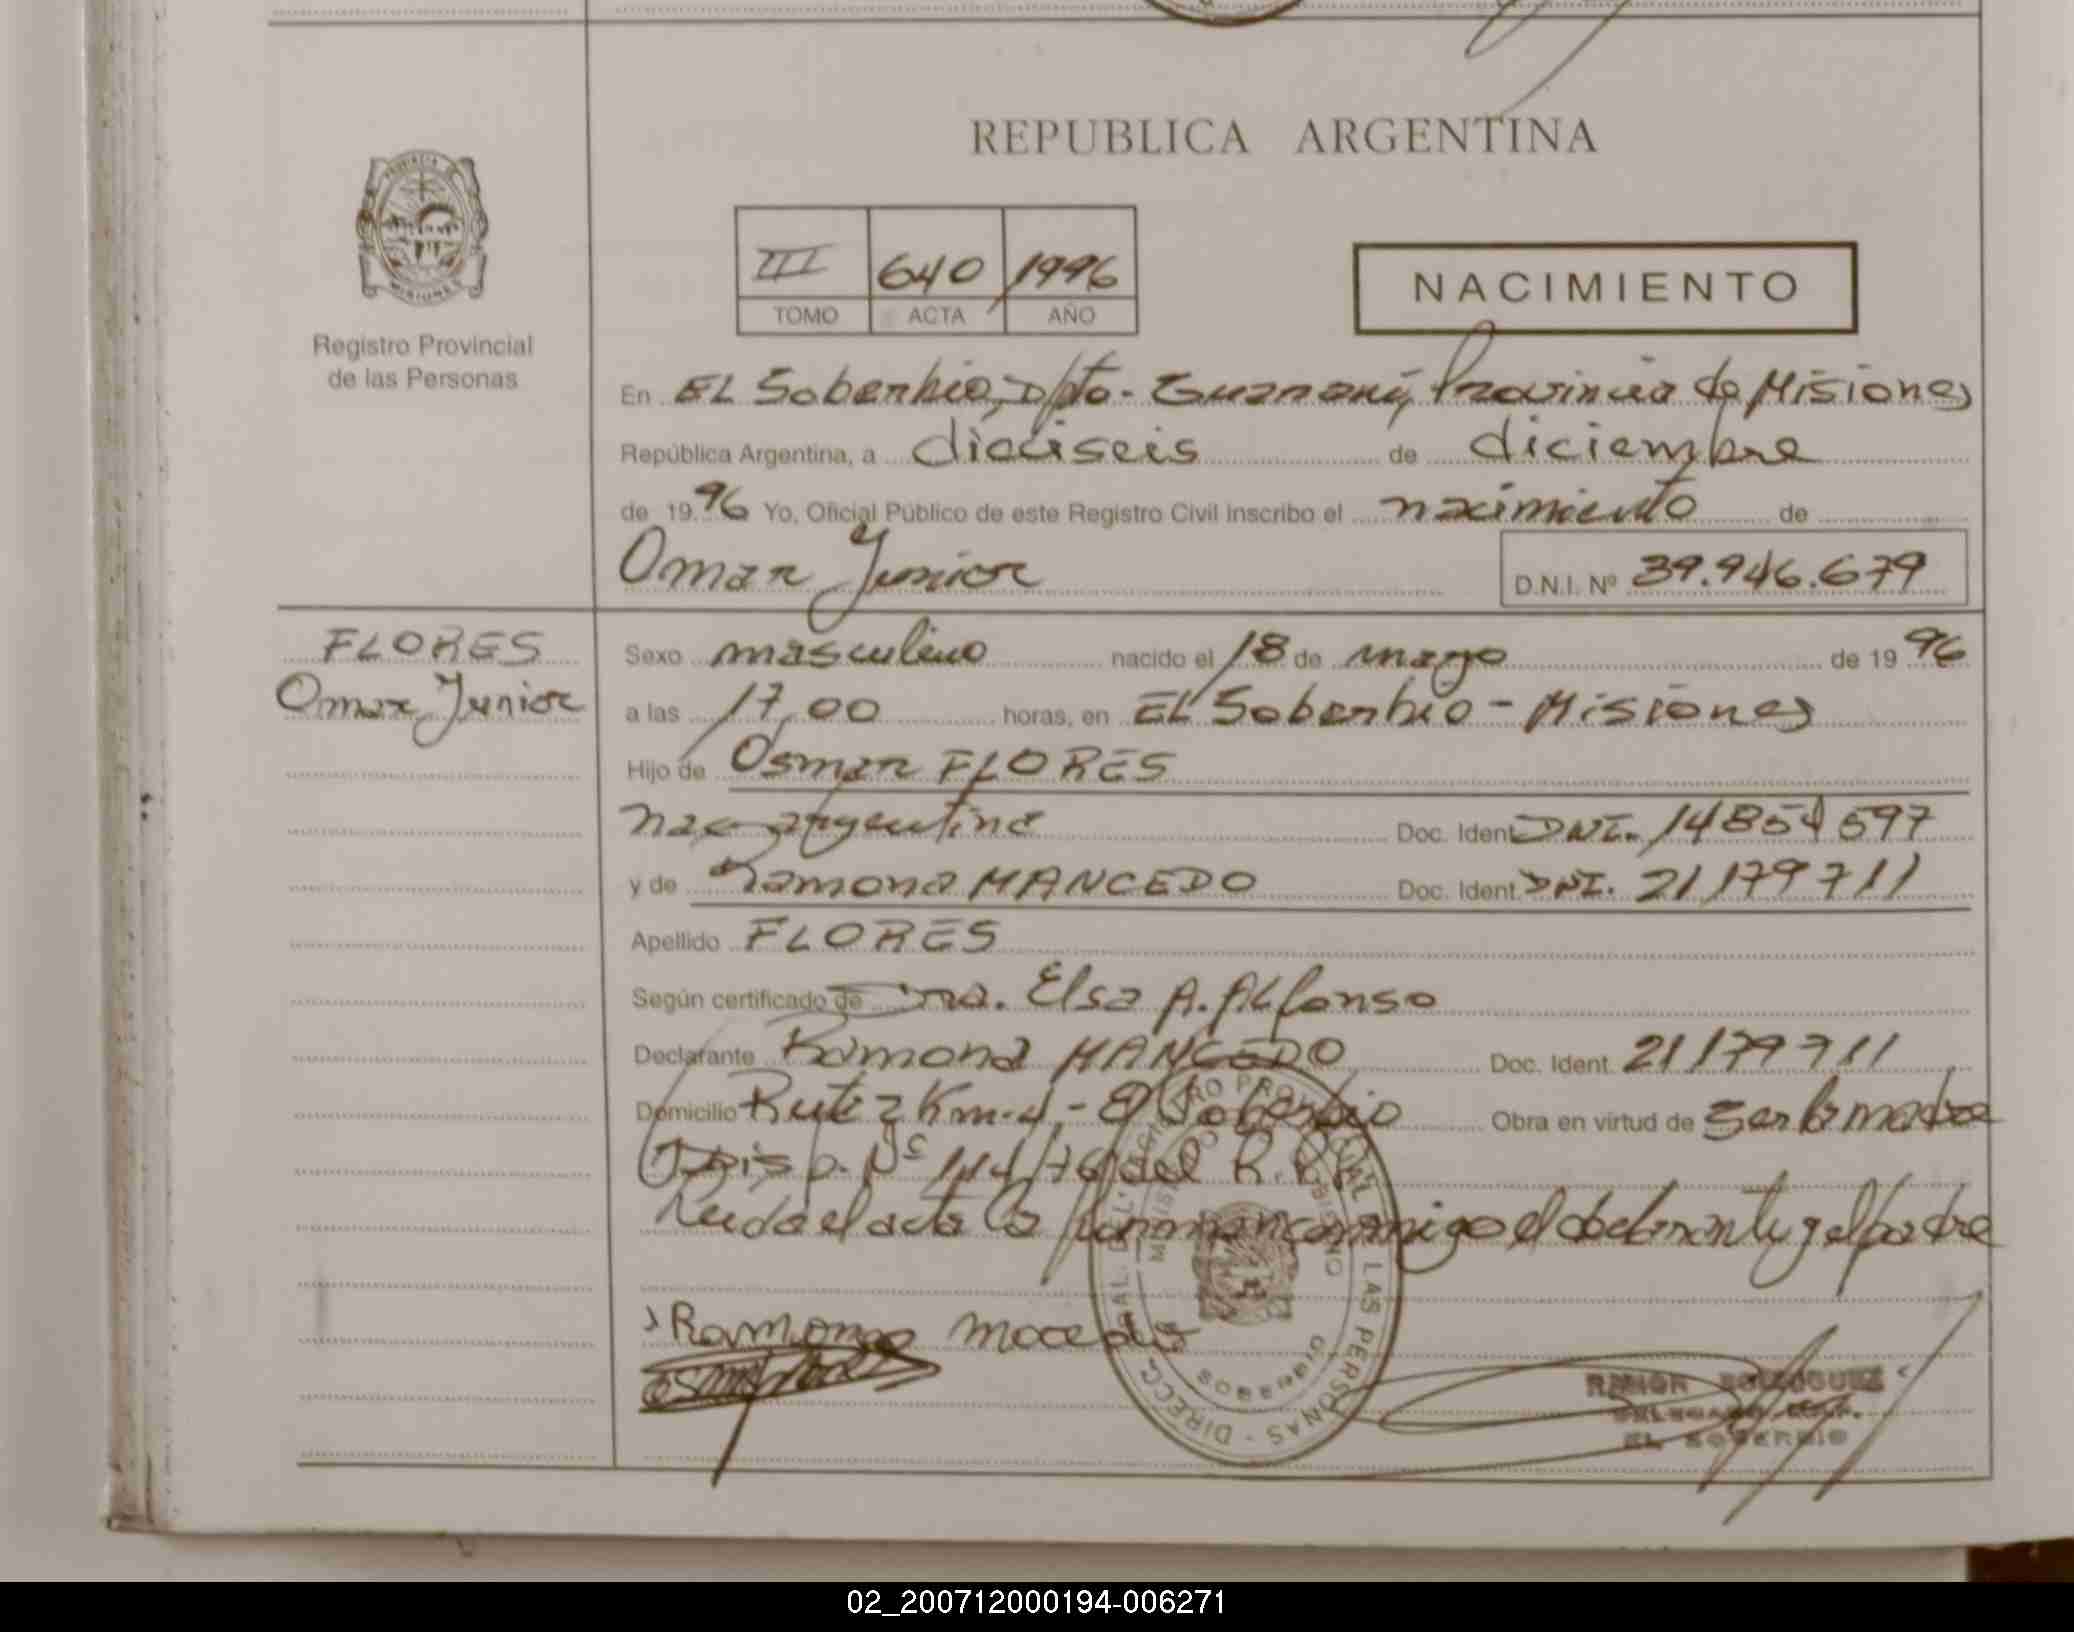 REPUBLICA ARGENTINA
PROVINCIA DE
MISIONES
Registro Provincial
de las Personas
III 640 1996
TOMO ACTA AÑO
NACIMIENTO
En EL Soberbio, Dpto- Guaraní, Provincia de Misiones
República Argentina, a dieciseis de diciembre
de 1996 Yo, Oficial Público de este Registro Civil inscribo el nacimiento de
Omar Junior D.N.I. Nº 39.946.679
FLORES
Omar Junior
Sexo masculino nacido el 18 de mayo de 1996
a las 17,00 horas, en EL Soberbio - Misiones
Hijo de Osmar FLORES
nac. argentina Doc. Ident. DNI. 14854597
y de Ramona MANCEDO Doc. Ident. DNI. 21179711
Apellido FLORES
Según certificado de Dra. Elsa A. ALfonso
Declarante Ramona MANCEDO Doc. Ident. 21179711
Domicilio Ruta 2 Km. 4 - El Soberbio Obra en virtud de ser la madre
Disp. Nº 114/76 del R.
Leida el acta la firman conmigo el declarante y el padre
Ramona
SOBERBIO
DIRECC LAS PERSONAS
EL SOBERBIO
02_200712000194-006271